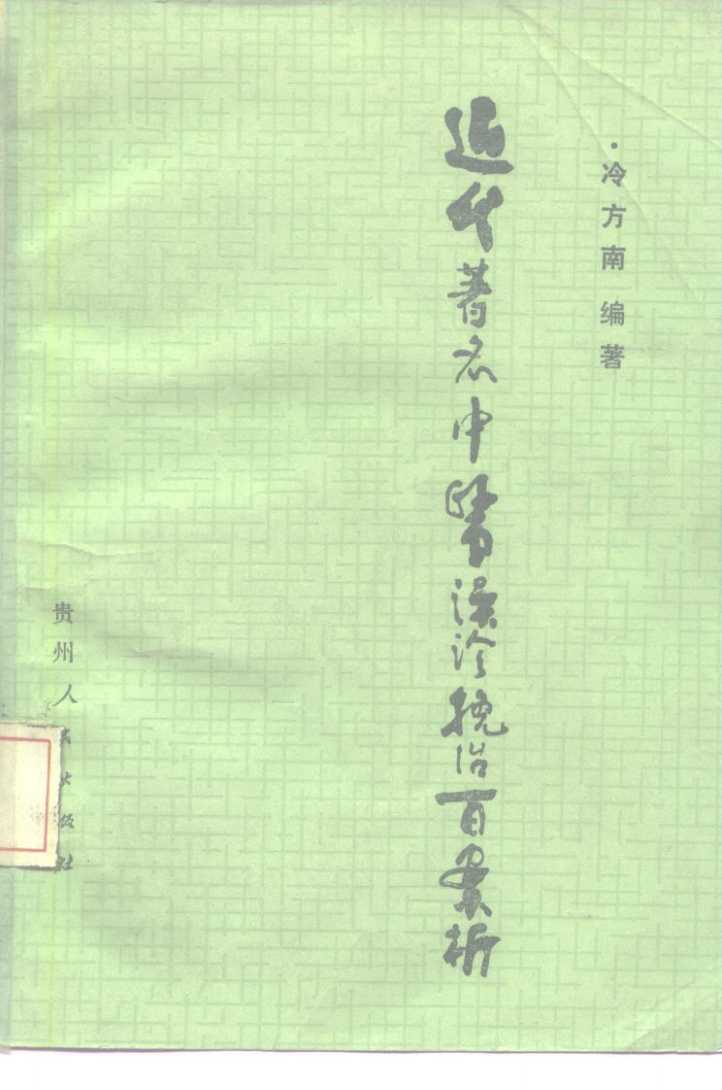 ·冷方南 编著
近代著名中醫误诊挽治百案析
贵州人民出版社